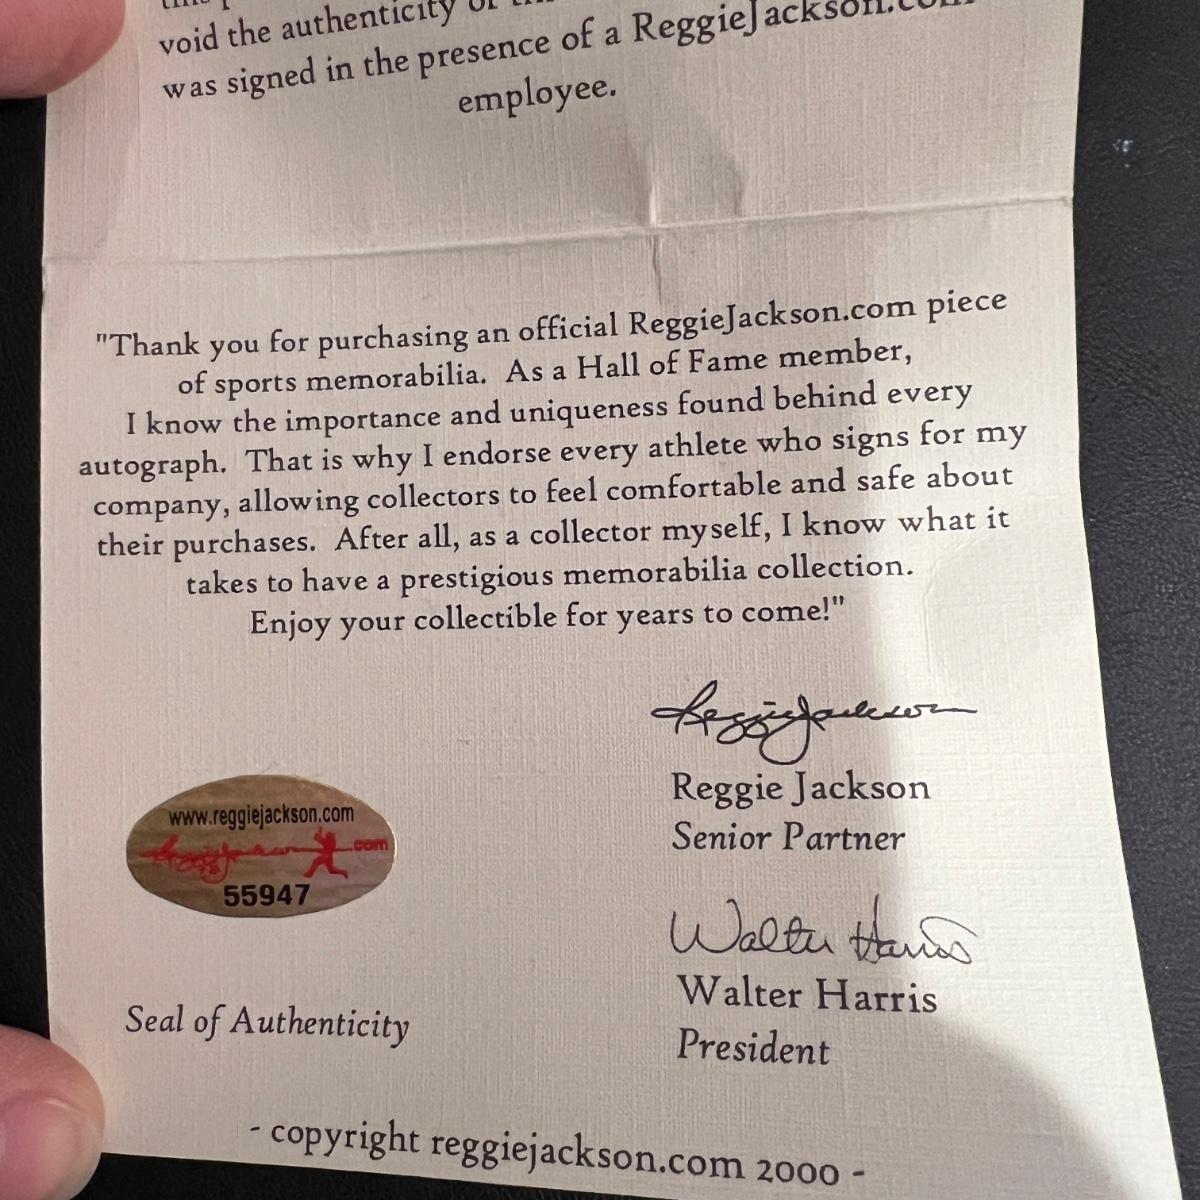 void the authenticity of
was signed in the presence of a ReggieJackson.com
employee.
"Thank you for purchasing an official ReggieJackson.com piece
of sports memorabilia. As a Hall of Fame member,
I know the importance and uniqueness found behind every
autograph. That is why I endorse every athlete who signs for my
company, allowing collectors to feel comfortable and safe about
their purchases. After all, as a collector myself, I know what it
takes to have a prestigious memorabilia collection.
Enjoy your collectible for years to come!"
Reggie Jackson
Reggie Jackson
Senior Partner
www.reggiejackson.com
Reggie Jackson .com
55947
Walter Harris
Walter Harris
President
Seal of Authenticity
- copyright reggiejackson.com 2000 -